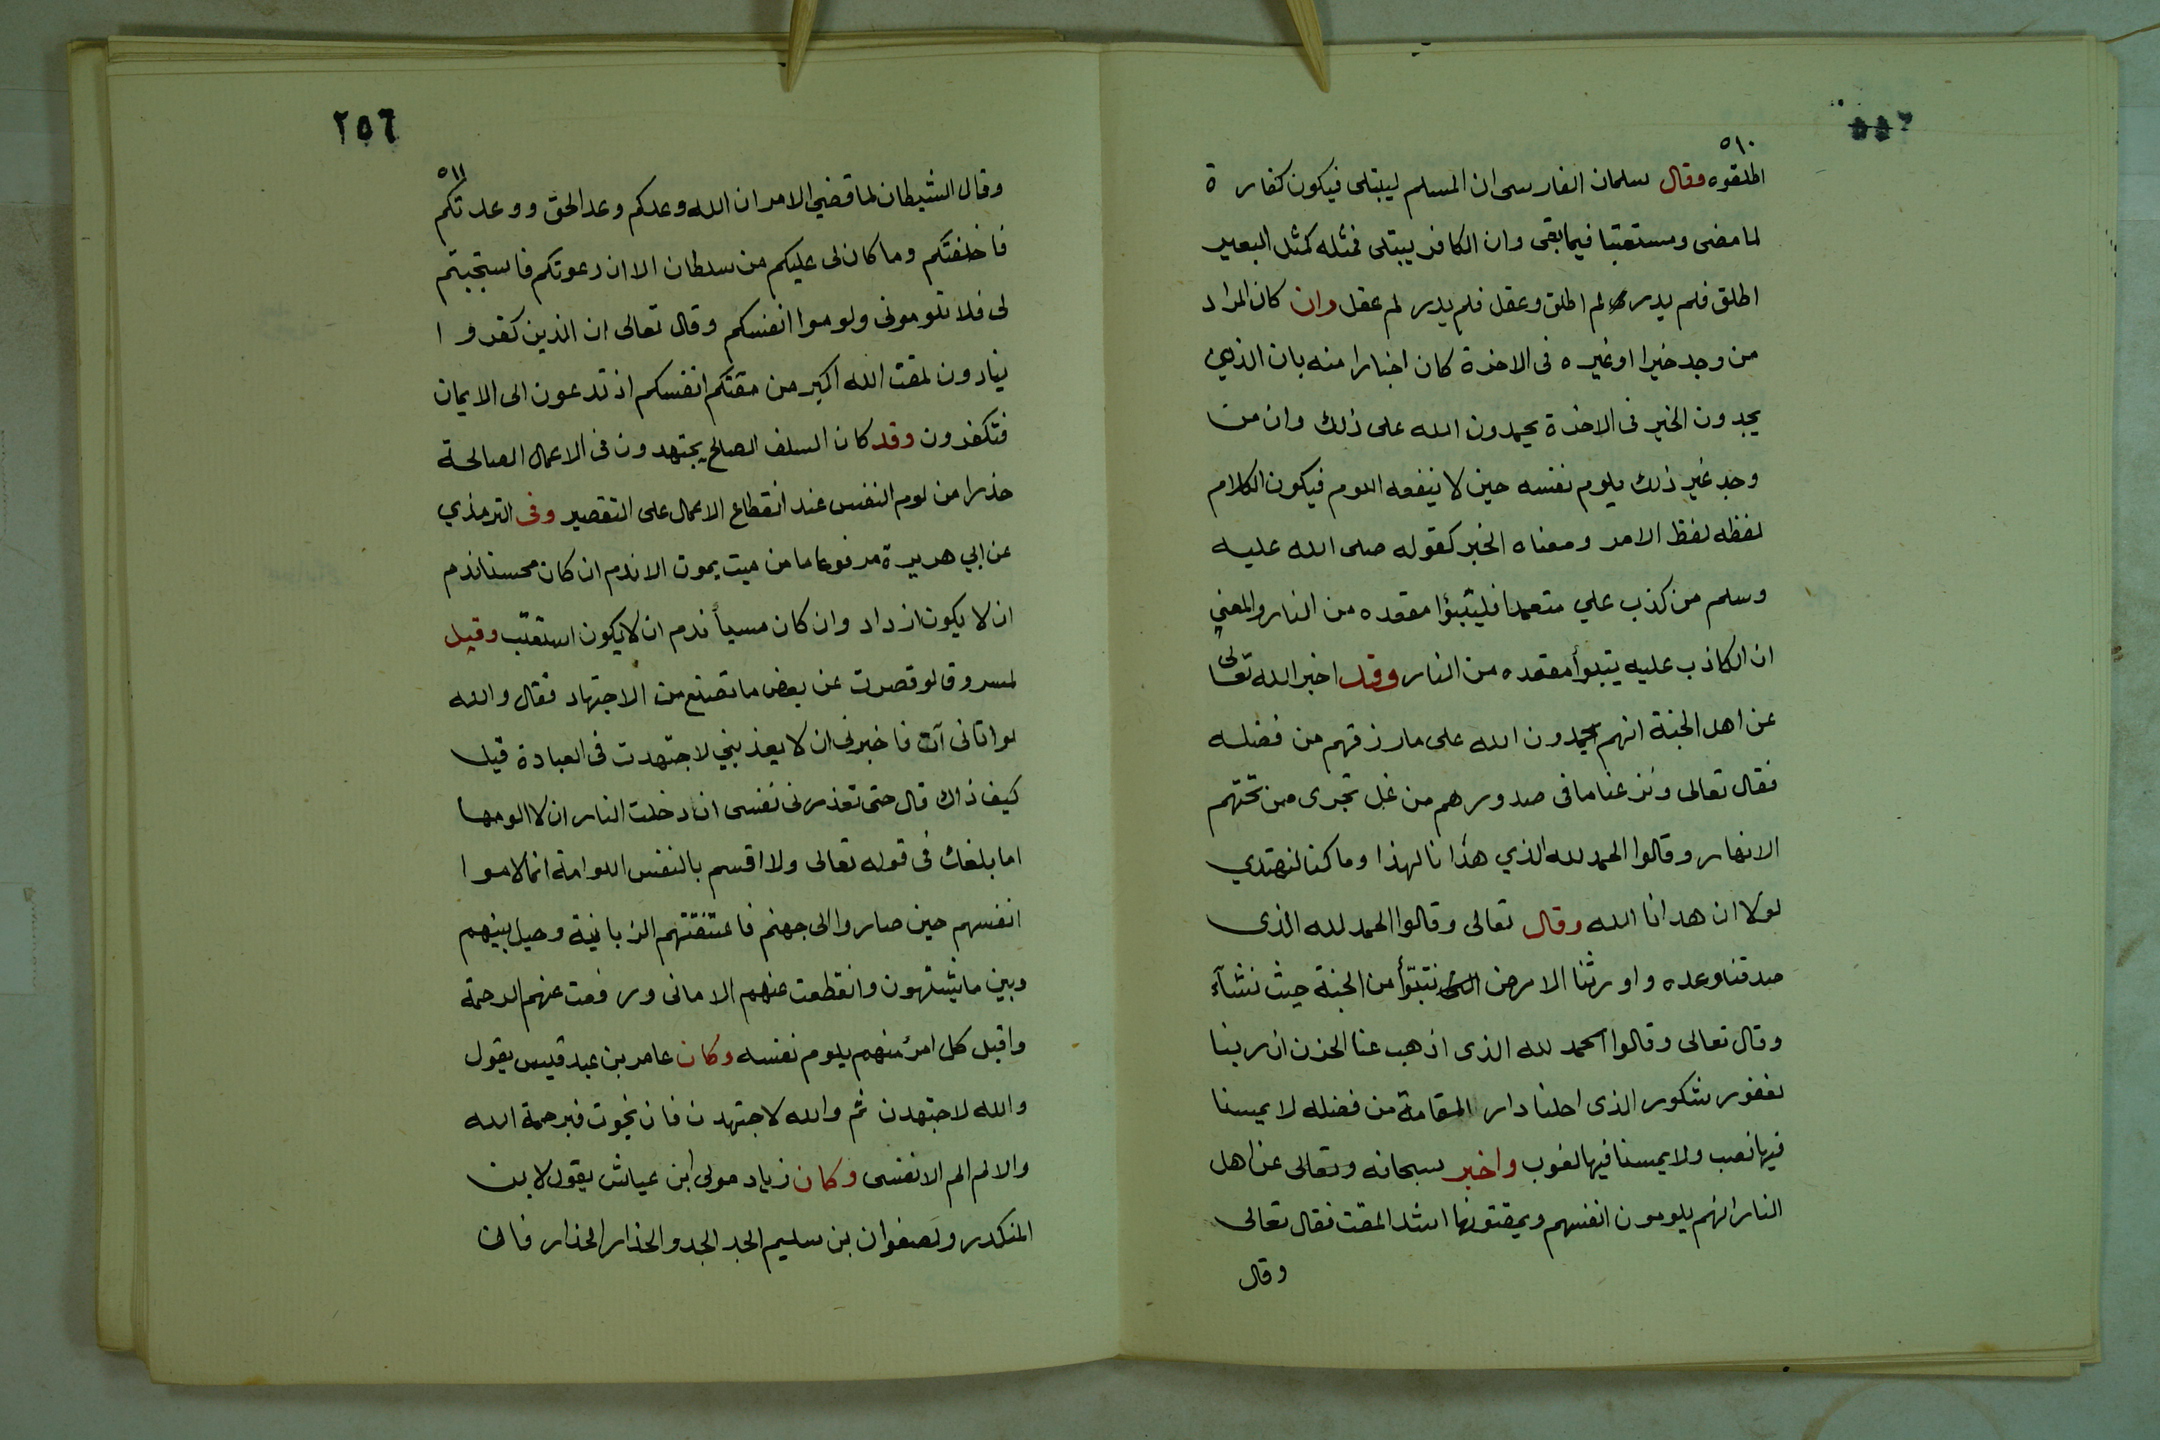 ٥١٠
اطلقوه وقال سلمان الفارسى ان المسلم ليبتلى فيكون كفارة
لما مضى ومستعتبا فيما بقى وان الكافر يبتلى فمثله كمثل البعير
اطلق فلم يدر لم اطلق وعقل فلم يدر لم عقل وان كان المراد
من وجد خيرا او غيره فى الاخرة كان اخبارا منه بان الذين
يجدون الخير فى الاخرة يحمدون الله على ذلك وان من
وجد غير ذلك يلوم نفسه حين لا ينفعه اللوم فيكون الكلام
لفظه لفظ الامر ومعناه الخبر كقوله صلى الله عليه
وسلم من كذب علي متعمدا فليتبؤا مقعده من النار والمعنى
ان الكاذب عليه يتبوأ مقعده من النار وقد اخبر الله تعالى
عن اهل الجنة انهم يحمدون الله على ما رزقهم من فضله
فقال تعالى ونزعنا ما فى صدورهم من غل تجرى من تحتهم
الانهار وقالوا الحمد لله الذي هدانا لهذا وما كنا لنهتدي
لولا ان هدانا الله وقال تعالى وقالوا الحمد لله الذى
صدقنا وعده واورثنا الارض نتبوأ من الجنة حيث نشآء
وقال تعالى وقالوا الحمد لله الذى اذهب عنا الحزن ان ربنا
لغفور شكور الذى احلنا دار المقامة من فضله لا يمسنا
فيها نصب ولا يمسنا فيها لغوب واخبر سبحانه وتعالى عن اهل
النار انهم يلومون انفسهم ويمقتونها اشد المقت فقال تعالى
وقال
٢٥٦
٥١١
وقال الشيطان لما قضي الامر ان الله وعدكم وعد الحق ووعدتكم
فاخلفتكم وما كان لى عليكم من سلطان الا ان دعوتكم فاستجبتم
لى فلا تلومونى ولوموا انفسكم وقال تعالى ان الذين كفروا
ينادون لمقت الله اكبر من مقتكم انفسكم اذ تدعون الى الايمان
فتكفرون وقد كان السلف الصالح يجتهدون فى الاعمال الصالحة
حذرا من لوم النفس عند انقطاع الاعمال على التقصير وفى الترمذي
عن ابي هريرة مرفوعا ما من ميت يموت الا ندم ان كان محسنا ندم
ان لا يكون ازداد وان كان مسيأ ندم ان لا يكون استعتب وقيل
لمسروق لو قصرت عن بعض ما تصنع من الاجتهاد فقال والله
لو اتانى آت فاخبرنى ان لا يعذبني لاجتهدت فى العبادة قيل
كيف ذاك قال حتى تعذرنى نفسى ان دخلت النار ان لا الومها
اما بلغك فى قوله تعالى ولا اقسم بالنفس اللوامة انما لاموا
انفسهم حين صاروا الى جهنم فاعتنقتهم الزبانية وحيل بينهم
وبين ما يشتهون وانقطعت عنهم الامانى ورفعت عنهم الرحمة
واقبل كل امرئ منهم يلوم نفسه وكان عامر بن عبد قيس يقول
والله لاجتهدن ثم والله لاجتهدن فان نجوت فبرحمة الله
والا لم الم الا نفسى وكان زياد مولى ابن عياش يقول لابن
المنكدر ولصفوان بن سليم الجد الجد والحذار الحذار فان